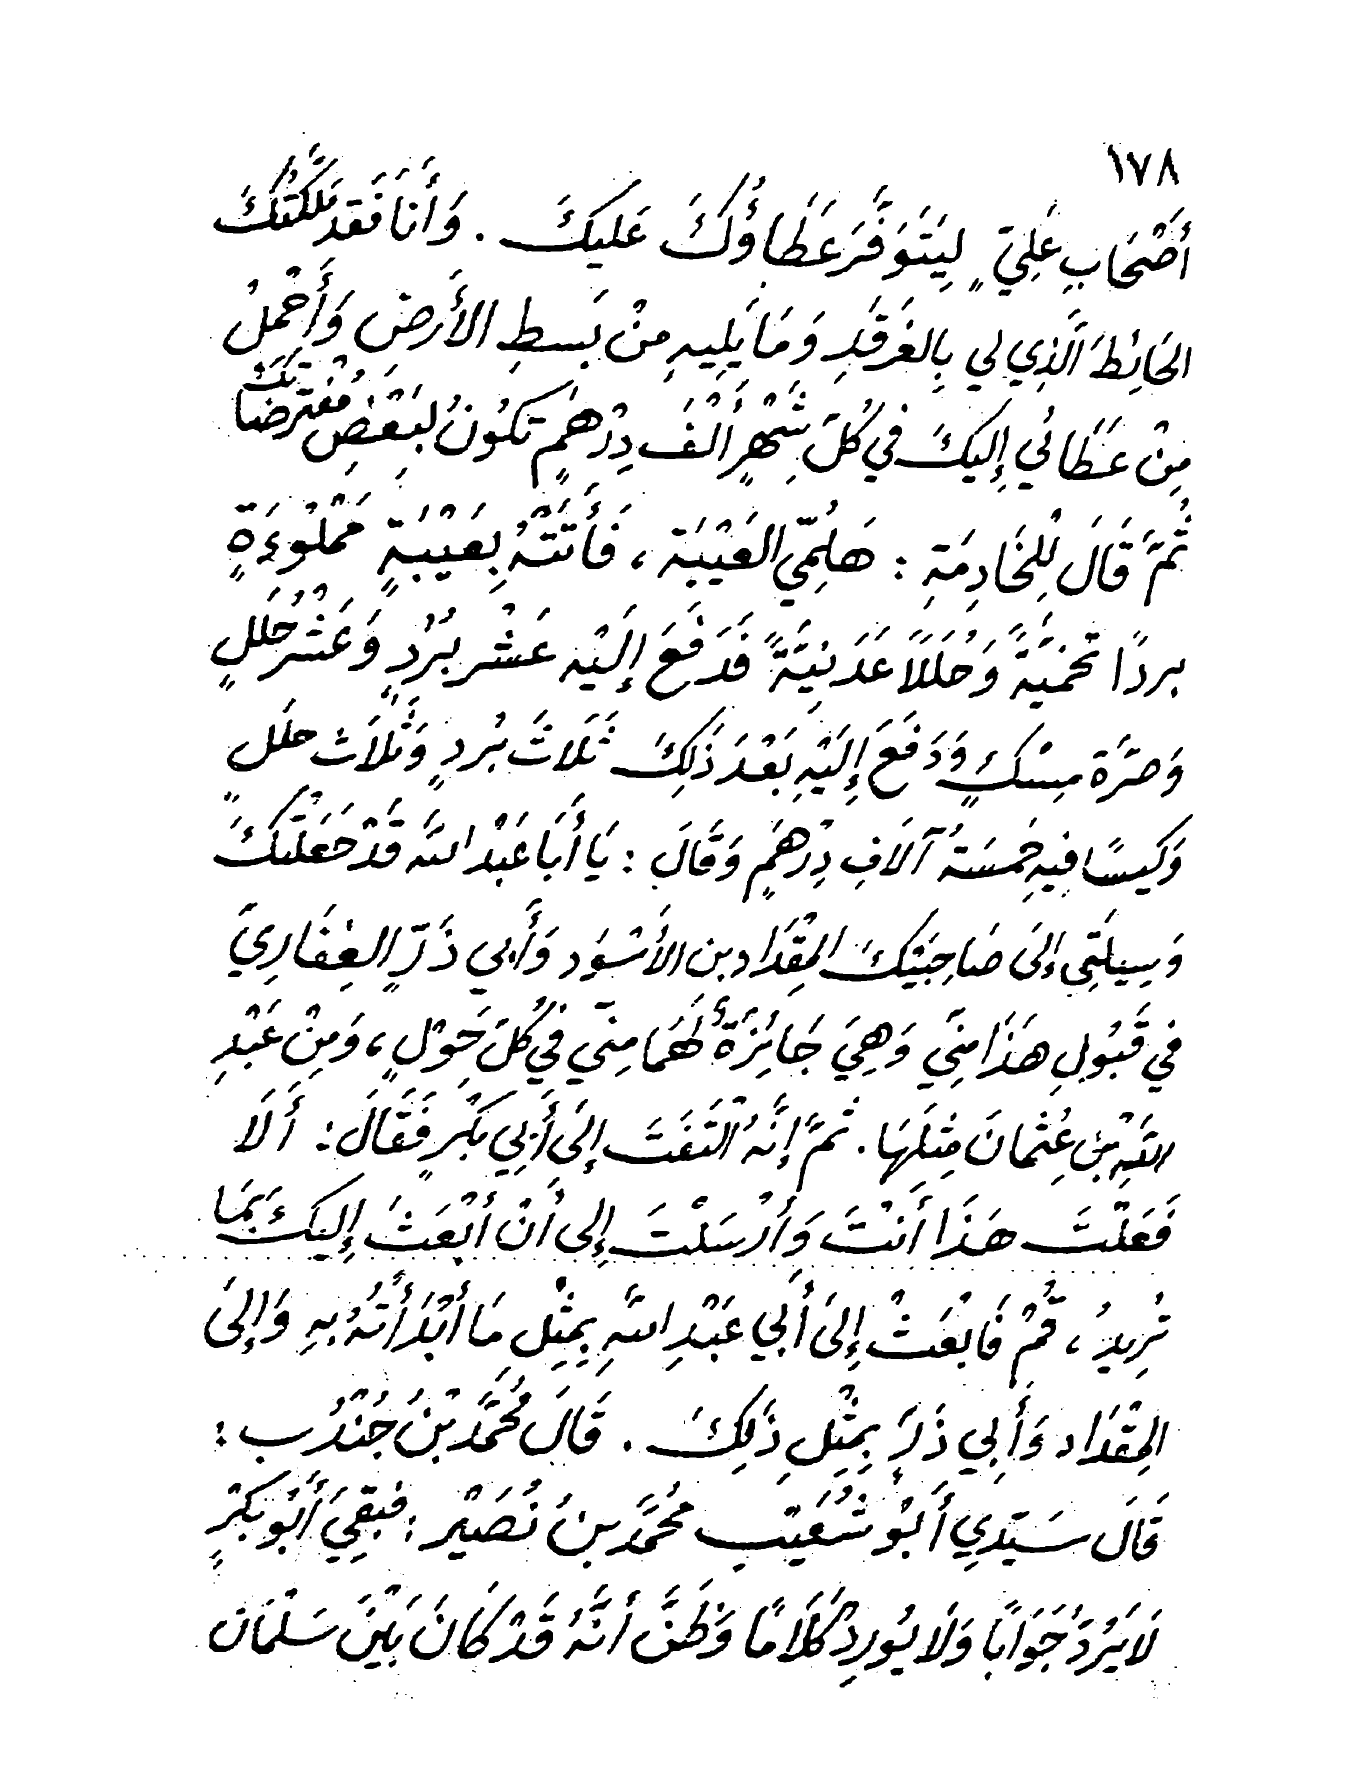 ١٧٨
أَصْحَابِ عَلِيٍّ لِيَتَوَفَّرَ عَطَاؤُكَ عَلَيكَ . وَأَنَا فَقَد مَلَّكتُكَ
الحَائِطَ الَّذِي لي بِالغَرقَدِ وَمَا يَلِيهِ مِنْ بَسطِ الأَرضِ وَأَحْمِلُ
مِنْ عَطَائي إِليكَ في كُلّ شَهْرٍ أَلْفَ دِرْهَمٍ تَكُونُ لِبَعْضِ مُفتَرضَاتِكَ
ثُمَّ قَالَ لِلْخَادِمَةِ : هَلُمِّي العَيْبَة ، فَأَتَتْهُ بِعَيْبَةٍ مَمْلُوءَةٍ
بردًا تحميَّةً وَحُلَلاً عَدَنِيَّةً فَدَفَعَ إِلَيْهِ عَشْر بُرْدٍ وَعَشْرَ حُلَلٍ
وَصرَّة مِسْكٍ وَدَفَعَ إِلَيْهِ بَعْدَ ذَلِكَ ثَلاَثَ بُردٍ وَثَلاَث حلَلٍ
وَكيسًا فِيهِ خَمسَةُ آلاَفِ دِرْهَمٍ وَقَالَ : يَا أَبَا عَبْدِ اللَّه قَدْ جَعَلْتُكَ
وَسِيلَتِي إِلىَ صَاحِبَيْكَ المِقْدَاد بن الأَسْوَد وَأَبي ذَرّ الغِفَارِيّ
في قَبُولِ هَذَا مِنِّي وَهِيَ جَائِزَةٌ لَهُمَا مِنّي فِي كُلّ حَوْلٍ ، وَمِنْ عَبْدِ
اللَّهِ بْنِ عُثمَانَ مِثلَهَا . ثمَّ إِنَّهُ الْتَفَتَ إِلَى أَبِي بَكْرٍ فَقَالَ : أَلَا
فَعَلْتَ هَذَا أَنْتَ وَأَرْسَلْتَ إِلى أَنْ أَبْعَثَ إِليكَ بمَا
تُرِيدُ ، قُمْ فَابْعَثْ إِلىَ أَبي عَبْدِ اللَّهِ بِمِثْلِ مَا أَبْدَأْتُهُ بِهِ وَإِلىَ
المِقْدَاد وَأَبِي ذَرّ بِمِثْلِ ذَلِكَ . قَالَ مُحَمَّد بْنُ جُنْدُب :
قَالَ سَيّدِي أَبُو شُعَيْب محُمَّد بنُ نُصَيْر : فبَقِيَ أَبُو بَكْرٍ
لَا يَرُدُّ جَوَابًا وَلَا يُورِدُ كَلَامًا وَظَنَّ أَنَّهُ قَدْ كَانَ بَيْنَ سَلْمَان